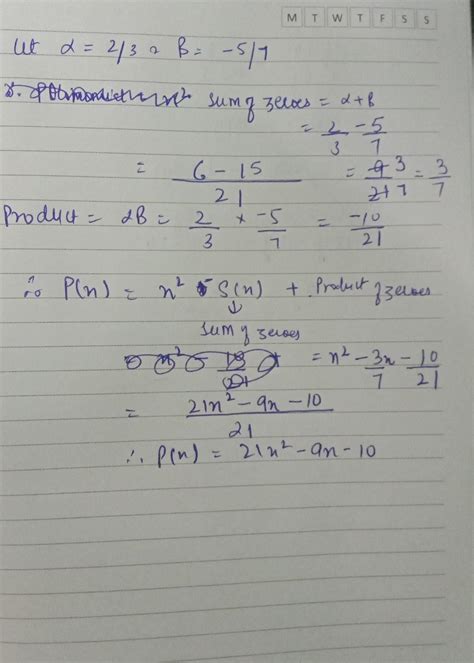 M T W T F S S
Let α = 2/3 , β = -5/7
Sum of zeroes = α+β
= 2/3 - 5/7
= 6 - 15 / 21 = 9 3 / 21 7 = 3/7
Product = αβ = 2/3 × -5/7 = -10/21
∴ P(x) = x² - S(x) + Product of zeroes
↓
Sum of zeroes
= x² - 3x/7 - 10/21
= 21x² - 9x - 10 / 21
∴ P(x) = 21x² - 9x - 10